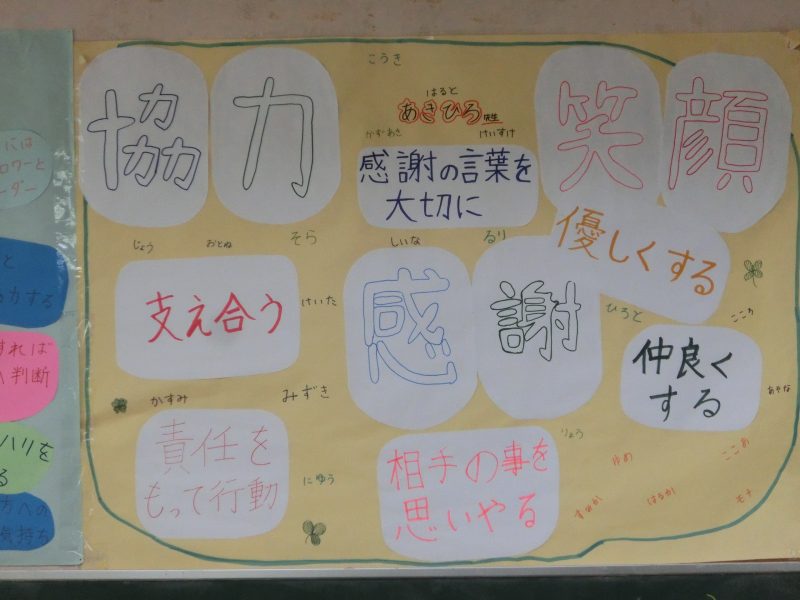 こうき
はると
あさひろ先生
かずあき けいすけ
協力
感謝の言葉を
大切に
笑顔
じょう おとね そら しいな るり
優しくする
支え合う
けいた
感謝
ひろと
ここか
仲良く
する
あやな
かすみ みずき
責任を
もって行動
にゆう
りょう
相手の事を
思いやる
ゆめ ここあ
すずか はるか モナ
ーダー
と
力する
すれば
判断
ハリを
る
方への
気持ち